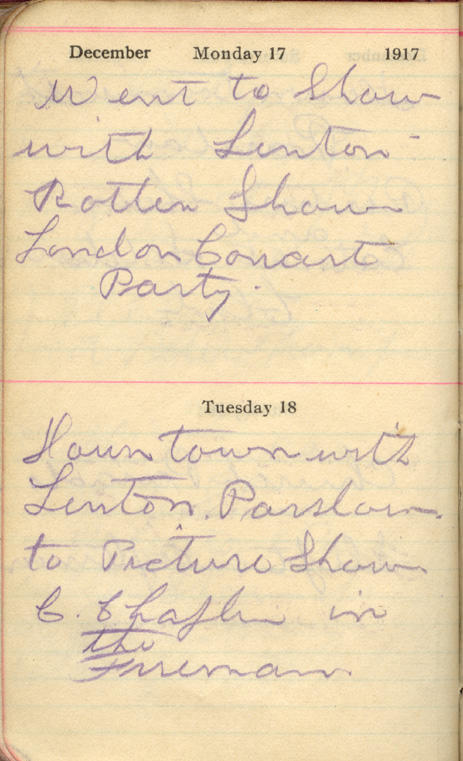 December Monday 17 1917
Went to Show
with Lenton -
Rotten Show
London Concarte
Party.
Tuesday 18
Down town with
Lenton. Parslow.
to Picture Show
C. Chaplin in
the
Fireman